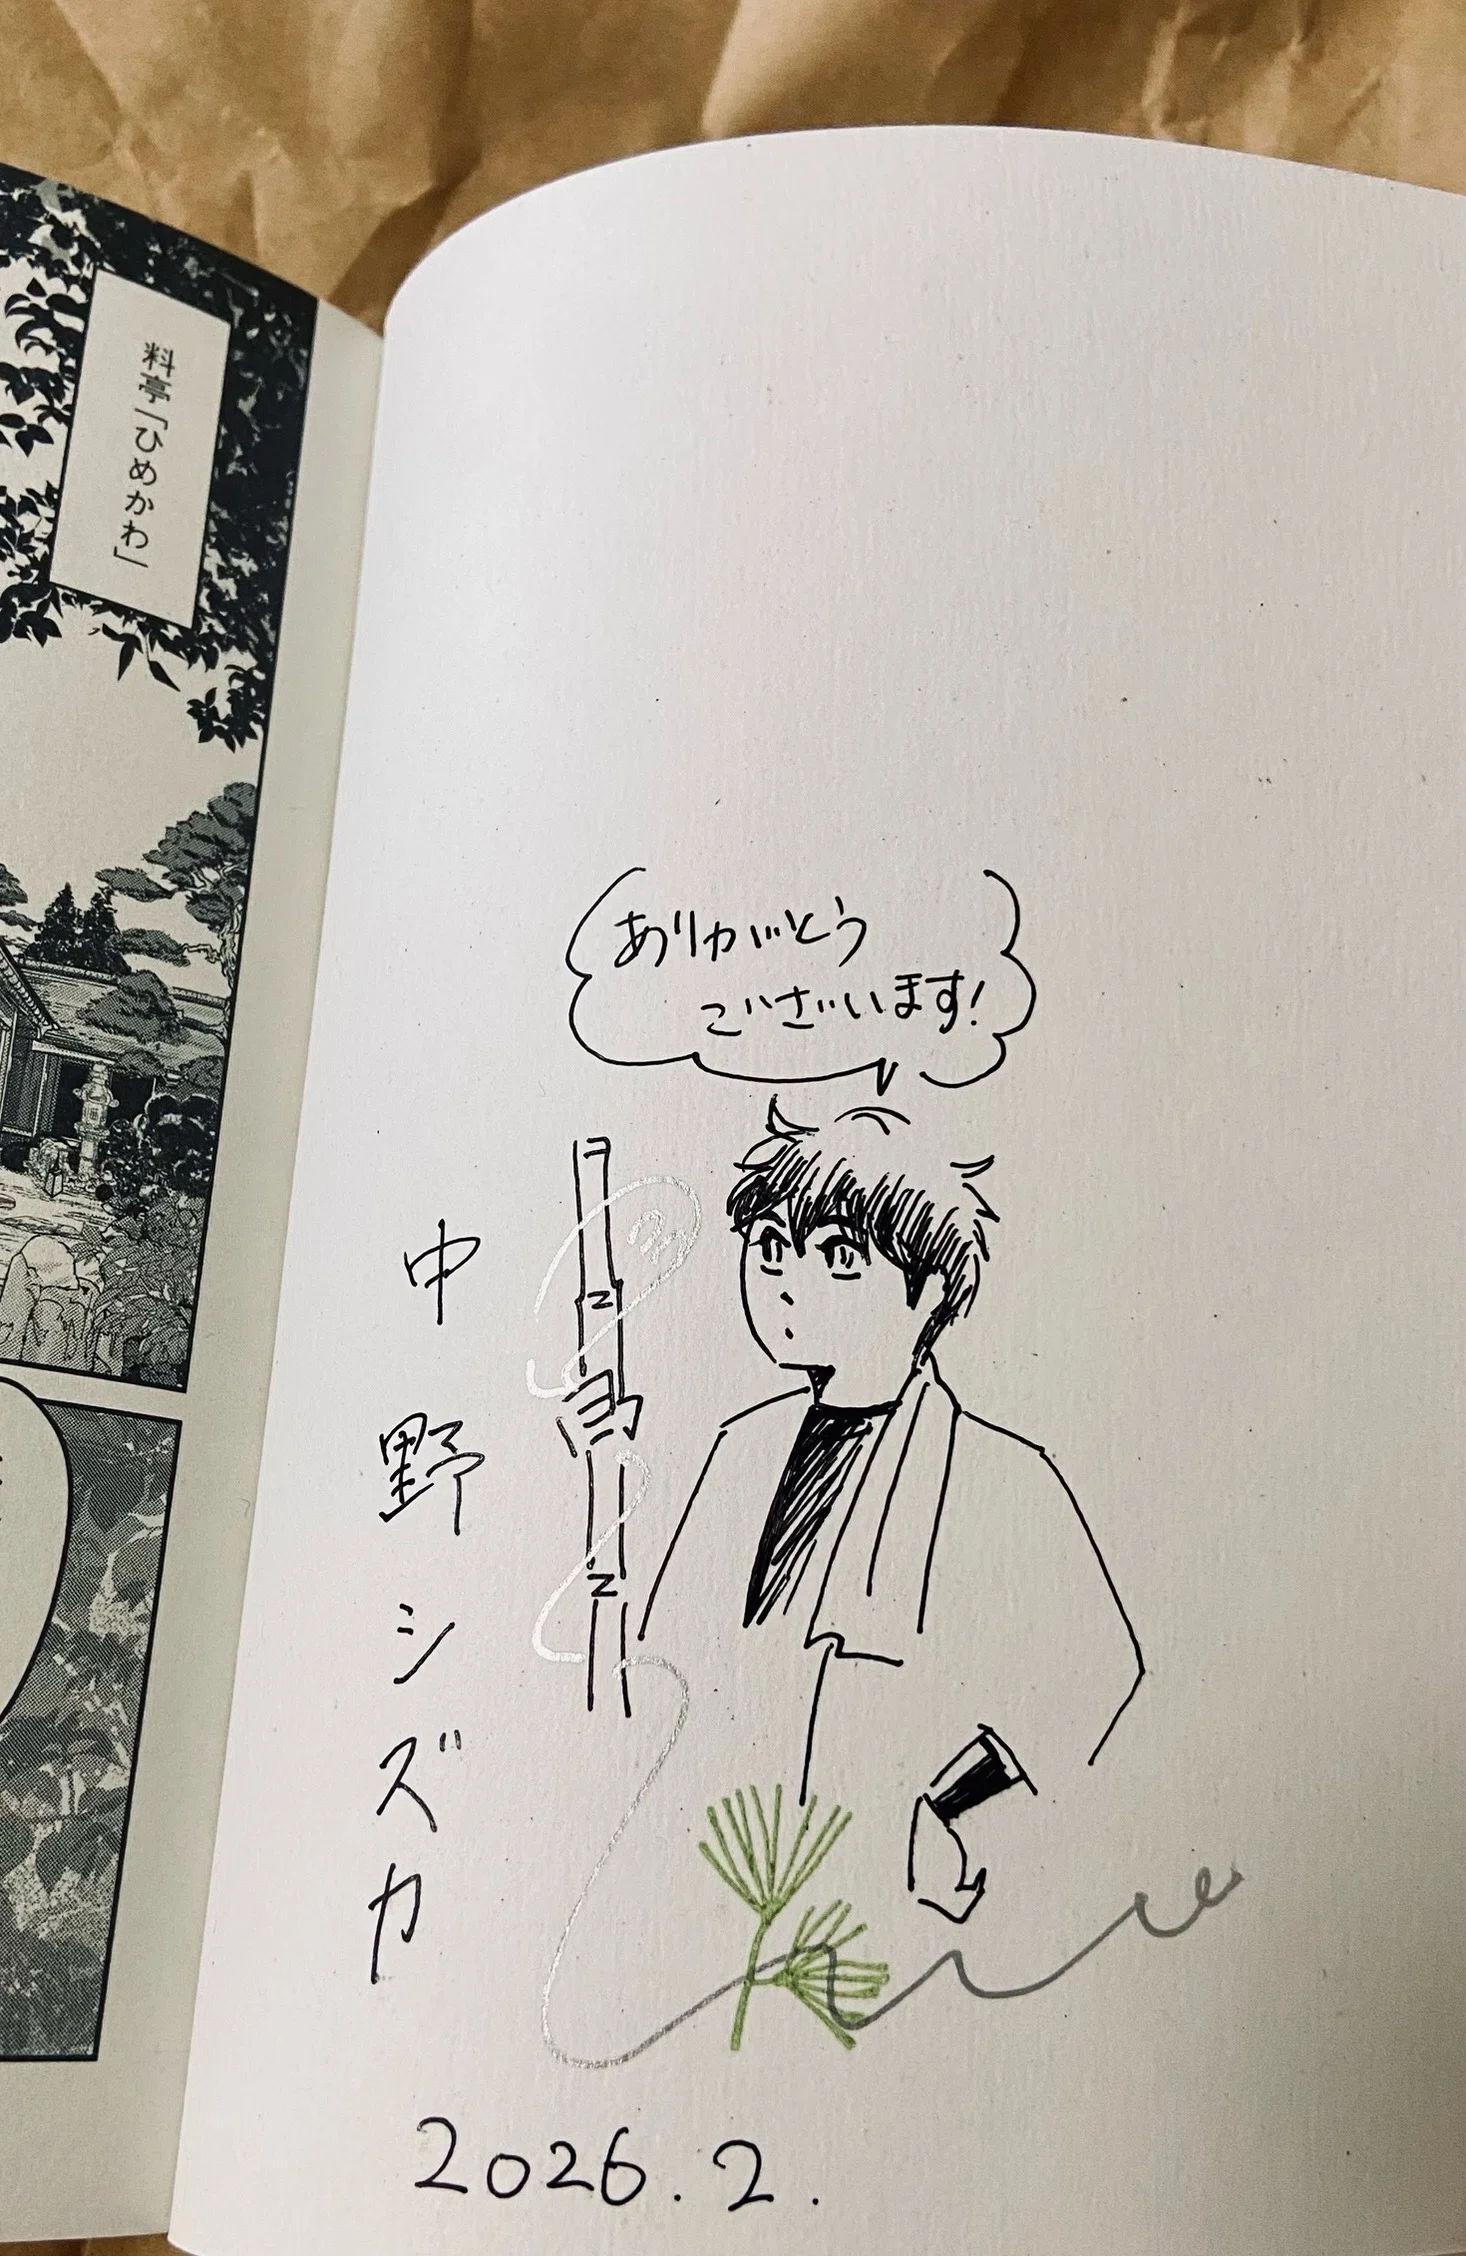 料亭「ひめかわ」
ありがとう
ございます!
中野シズカ
2026.2.